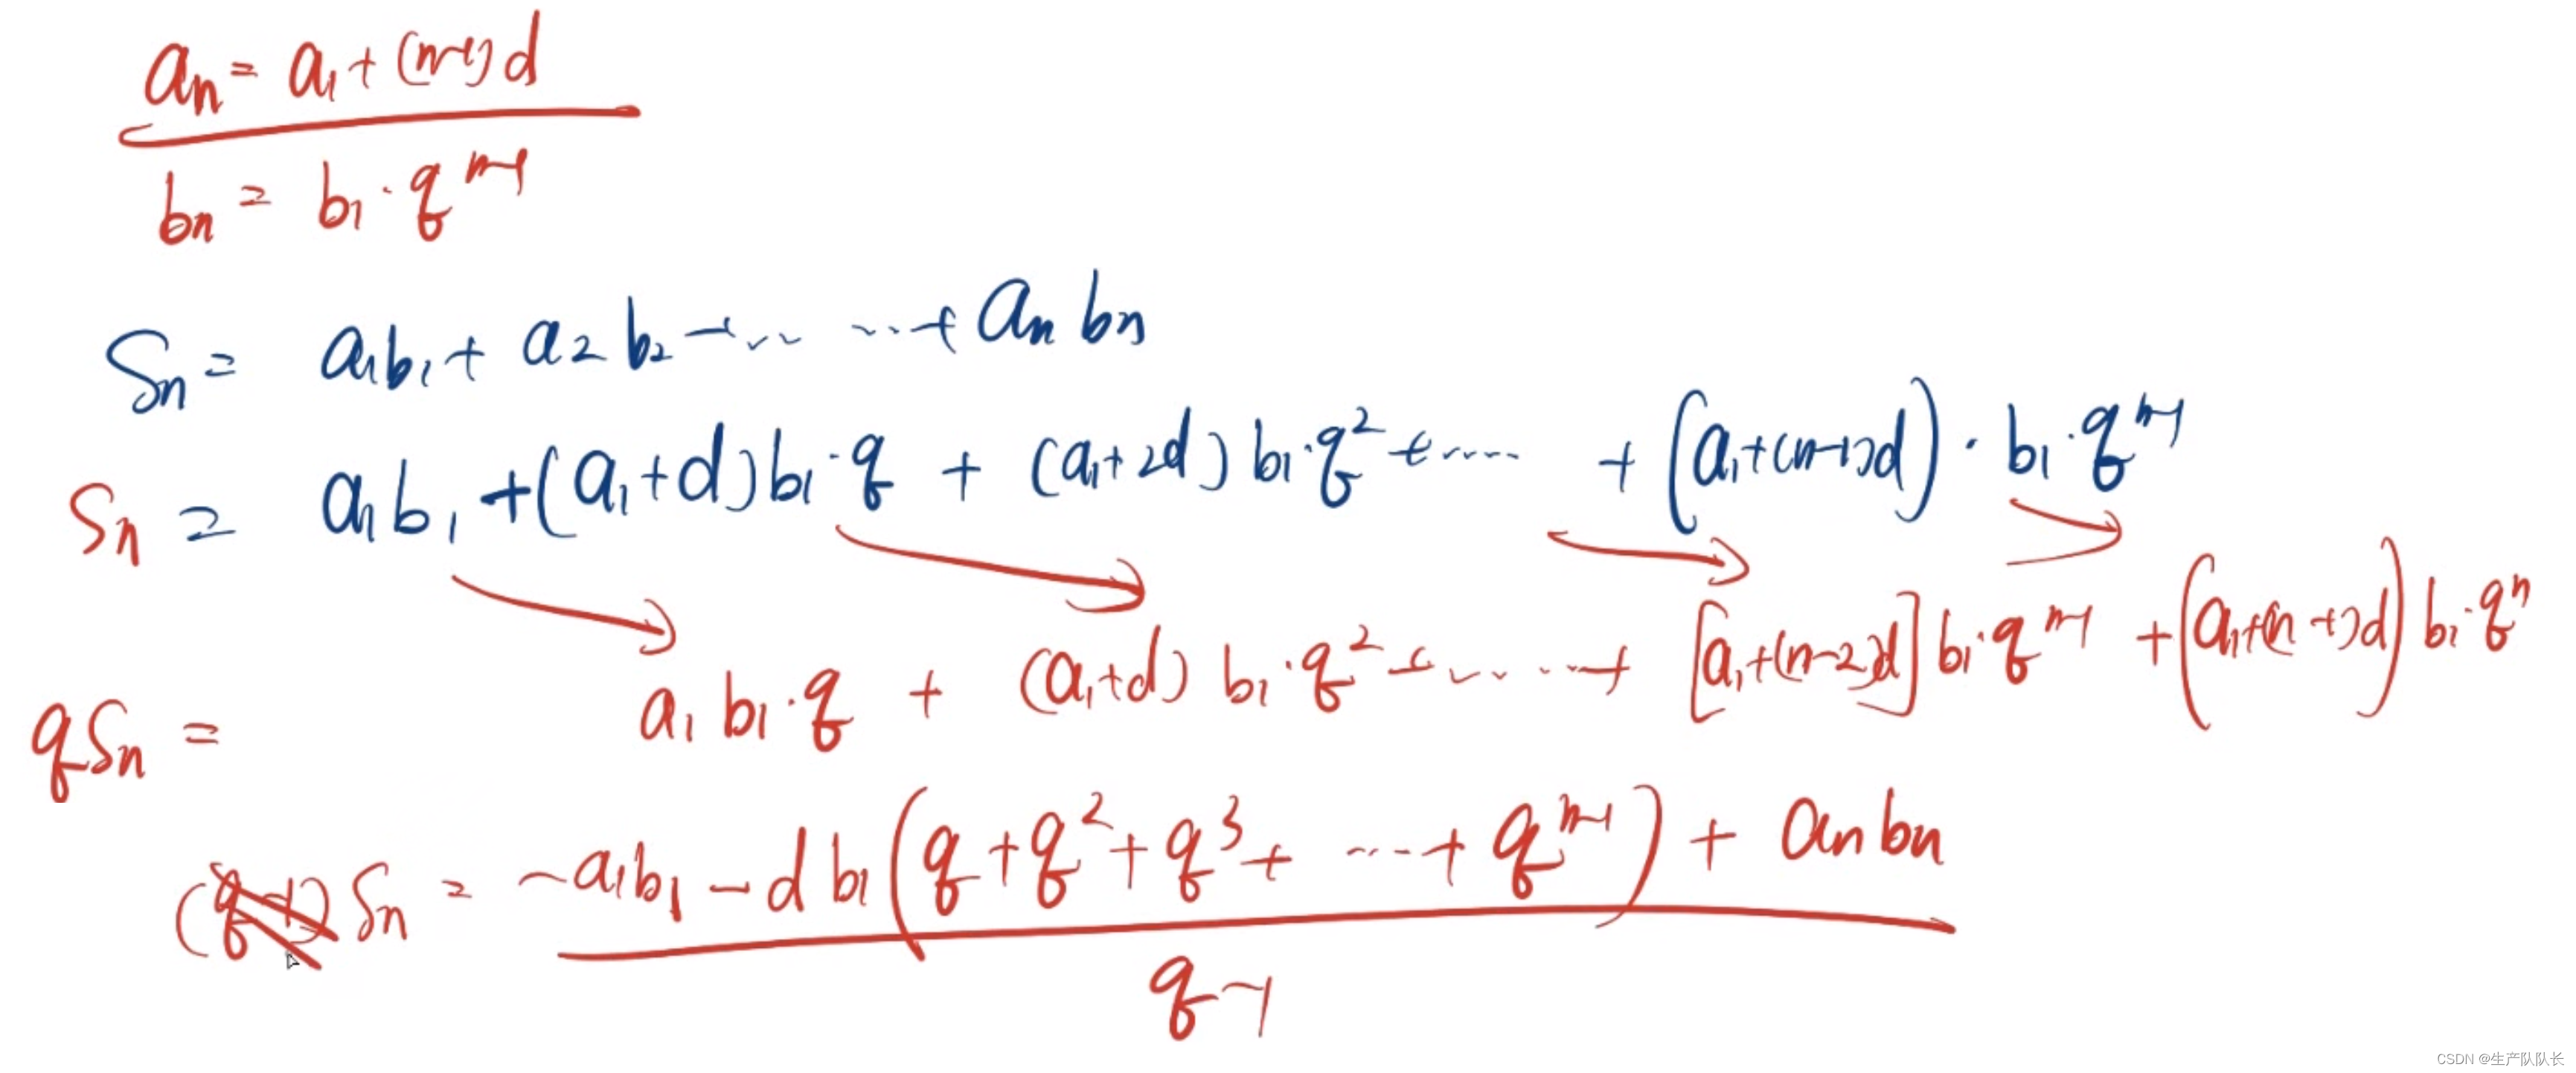 aₙ = a₁ + (n-1)d
bₙ = b₁·qⁿ⁻¹
Sₙ = a₁b₁ + a₂b₂ + ...... + aₙbₙ
Sₙ = a₁b₁ + (a₁+d)b₁·q + (a₁+2d)b₁·q² + ..... + (a₁+(n-1)d)·b₁·qⁿ⁻¹
qSₙ = a₁b₁·q + (a₁+d)b₁·q² + ...... + [a₁+(n-2)d]b₁·qⁿ⁻¹ + (a₁+(n-1)d)b₁·qⁿ
(q-1)Sₙ = -a₁b₁ - db₁(q + q² + q³ + ... + qⁿ⁻¹) + aₙbₙ
q-1
CSDN @生产队队长